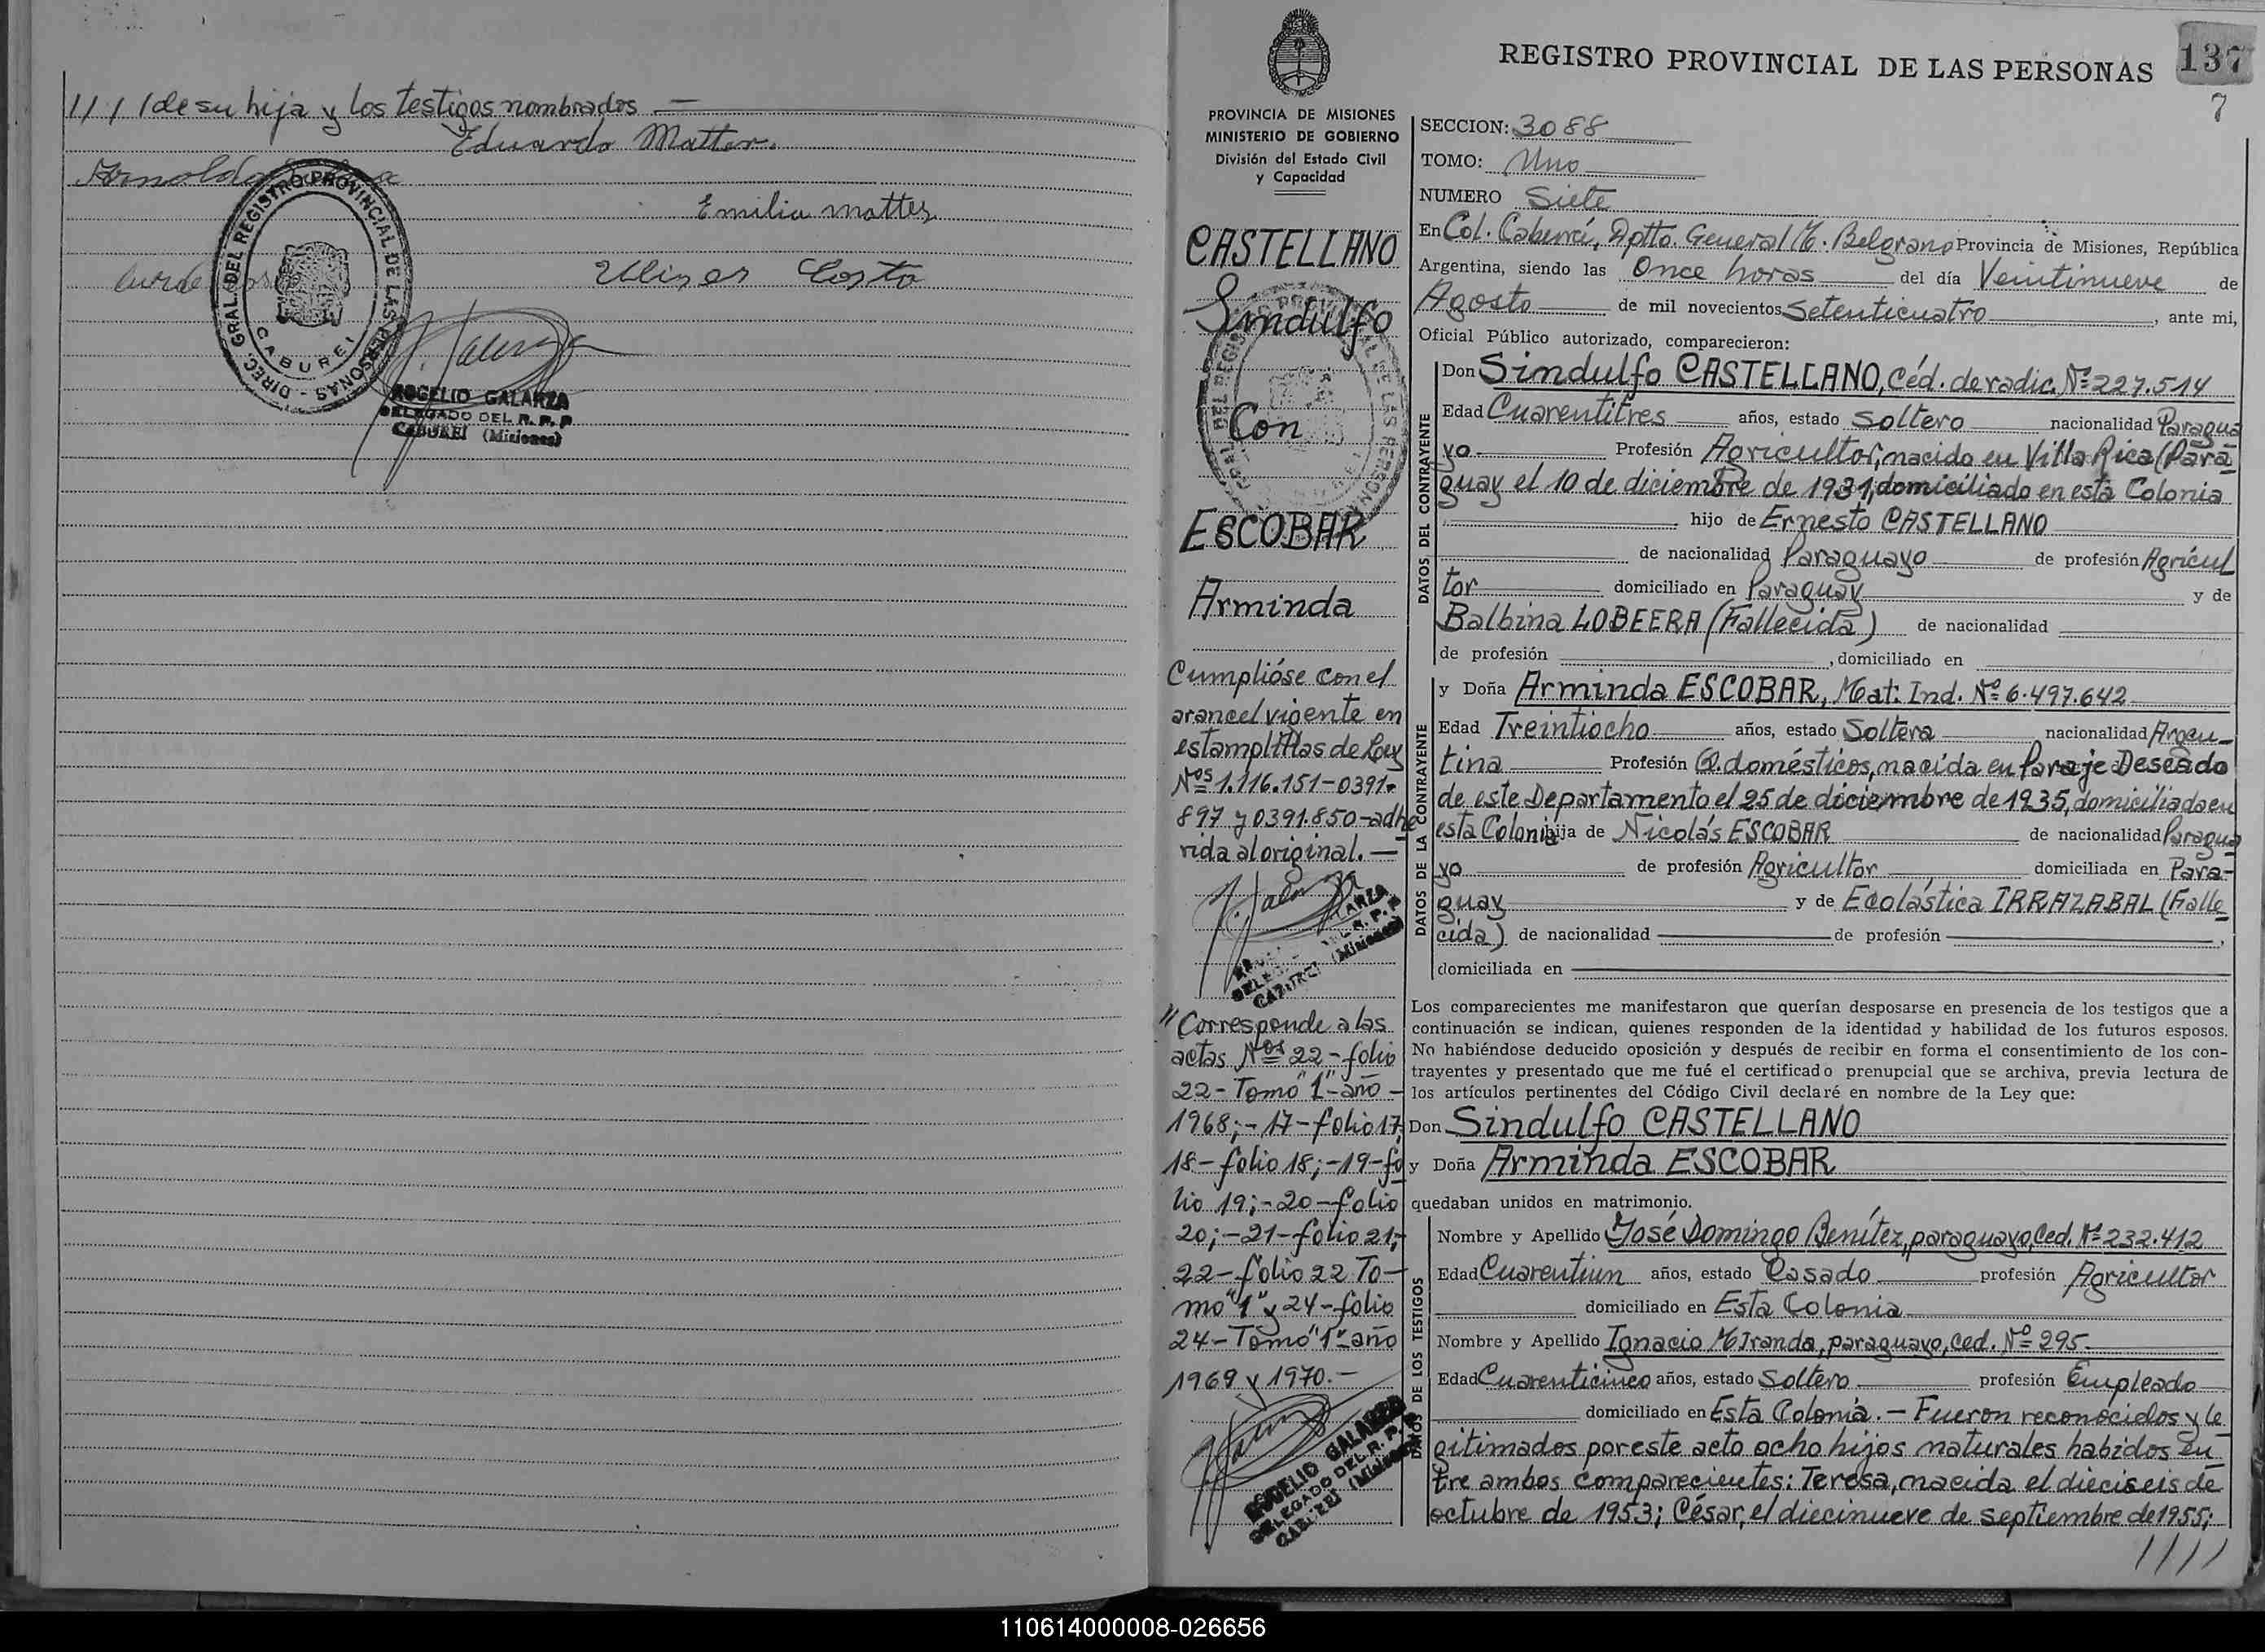 //// de su hija y los testigos nombrados.—
Eduardo Matter.
Arnoldo
Emilia mattes
Ulises Costa
DIREC. GRAL. DEL REGISTRO PROVINCIAL DE LAS PERSONAS - CABUREI
ROGELIO GALARZA
DELEGADO DEL R. P. P
CABUREI (Misiones)
REGISTRO PROVINCIAL DE LAS PERSONAS
137
7
PROVINCIA DE MISIONES
MINISTERIO DE GOBIERNO
División del Estado Civil
y Capacidad
CASTELLANO
Sindulfo
Con
ESCOBAR
Arminda
Cumplióse con el
arancel vigente en
estampillas de Ley
Nos 1.116.151-0391.
897 y 0391.850-adhe
rida al original.—
"Corresponde a las
actas Nos 22-folio
22-Tomo "1"-año-
1968;-17-folio 17,
18-folio 18;-19-fo
lio 19;-20-folio
20;-21-folio 21;-
22-folio 22 To-
mo "1" y 24-folio
24-Tomo "1"-año
1969 y 1970.-
ROGELIO GALARZA
DELEGADO DEL R. P. P
CABUREI (Misiones)
SECCION: 3088
TOMO: Uno
NUMERO Siete
En Col. Caburei, Dptto. General M. Belgrano Provincia de Misiones, República
Argentina, siendo las Once horas del día Veintinueve de
Agosto de mil novecientos Setenticuatro, ante mi,
Oficial Público autorizado, comparecieron:
DATOS DEL CONTRAYENTE
Don Sindulfo CASTELLANO, Céd. de radic. Nº 227.514
Edad Cuarentitres años, estado Soltero nacionalidad Paragua
yo Profesión Agricultor, nacido en Villa Rica (Para
guay el 10 de diciembre de 1931, domiciliado en esta Colonia
hijo de Ernesto CASTELLANO
de nacionalidad Paraguayo de profesión Agricul
tor domiciliado en Paraguay y de
Balbina LOBEERA (Fallecida) de nacionalidad
de profesión , domiciliado en
DATOS DE LA CONTRAYENTE
y Doña Arminda ESCOBAR, Mat: Ind. Nº 6.497.642
Edad Treintiocho años, estado Soltera nacionalidad Argen-
tina Profesión Q. domésticos, nacida en Paraje Deseado
de este Departamento el 25 de diciembre de 1935, domiciliada en
esta Colonia hija de Nicolás ESCOBAR de nacionalidad Paragua
yo de profesión Agricultor domiciliada en Para-
guay y de Ecolástica IRRAZABAL (Falle
cida) de nacionalidad de profesión ,
domiciliada en
Los comparecientes me manifestaron que querían desposarse en presencia de los testigos que a
continuación se indican, quienes responden de la identidad y habilidad de los futuros esposos.
No habiéndose deducido oposición y después de recibir en forma el consentimiento de los con-
trayentes y presentado que me fué el certificado prenupcial que se archiva, previa lectura de
los artículos pertinentes del Código Civil declaré en nombre de la Ley que:
Don Sindulfo CASTELLANO
y Doña Arminda ESCOBAR
quedaban unidos en matrimonio.
DATOS DE LOS TESTIGOS
Nombre y Apellido José Domingo Benítez, paraguayo, Ced. Nº 232.412
Edad Cuarentiun años, estado Casado profesión Agricultor
domiciliado en Esta Colonia
Nombre y Apellido Ignacio Miranda, paraguayo, Ced. Nº 295.
Edad Cuarenticinco años, estado Soltero profesión Empleado
domiciliado en Esta Colonia.— Fueron reconocidos y le
gitimados por este acto ocho hijos naturales habidos en
tre ambos comparecientes: Teresa, nacida el dieciseis de
octubre de 1953; César, el diecinueve de septiembre de 1955;
////
110614000008-026656